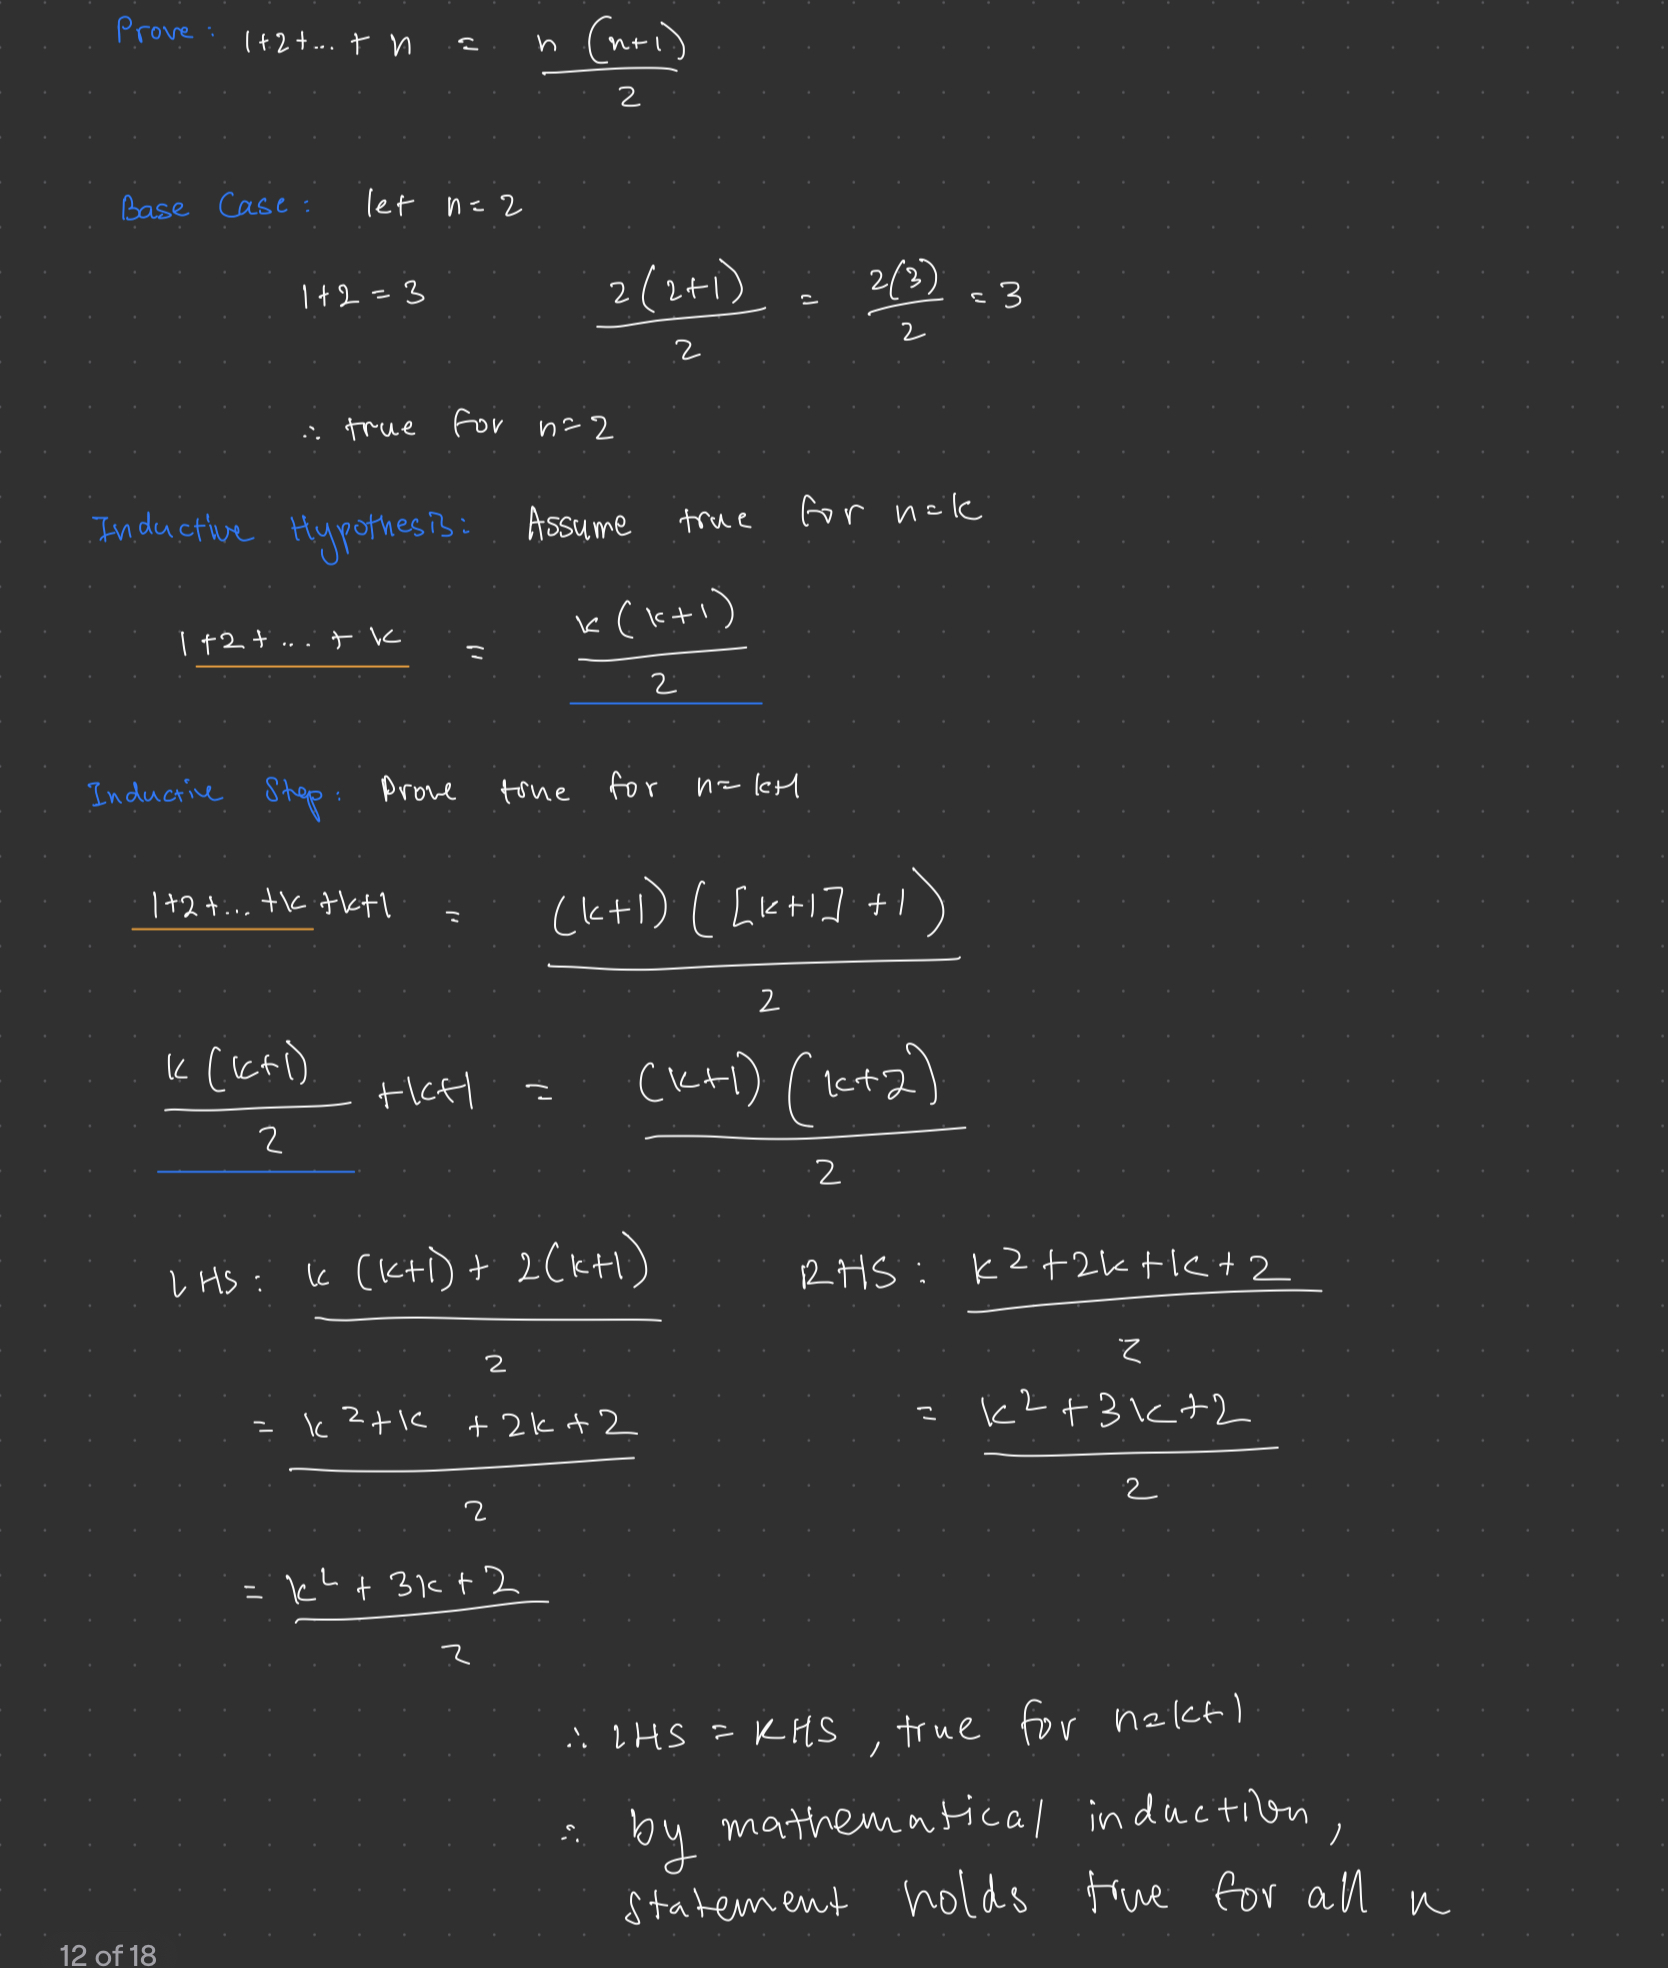 Prove: 1+2+... + n = n(n+1)/2
Base Case: let n=2
1+2=3 2(2+1)/2 = 2(3)/2 = 3
∴ true for n=2
Inductive Hypothesis: Assume true for n=k
1+2+...+k = k(k+1)/2
Inductive Step: Prove true for n=k+1
1+2+...+k+k+1 = (k+1)([k+1]+1)/2
k(k+1)/2 +k+1 = (k+1)(k+2)/2
LHS: k(k+1)+2(k+1)/2 RHS: k²+2k+k+2/2
= k²+k+2k+2/2 = k²+3k+2/2
= k²+3k+2/2
∴ LHS = RHS, true for n=k+1
∴ by mathematical induction,
statement holds true for all n
12 of 18